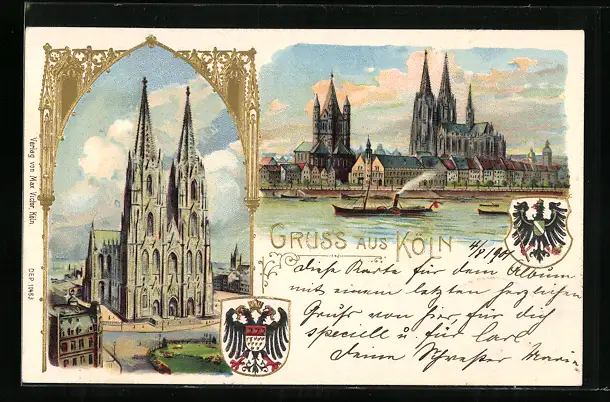 Verlag von Max Victor, Köln
DEP 11483
GRUSS AUS KÖLN
4/8 1901
diese Karte für dem Album
mit einem letzten herzlichen
Gruße von hier, für dich
speciell u. für Carl.
Deine Schwester Marie